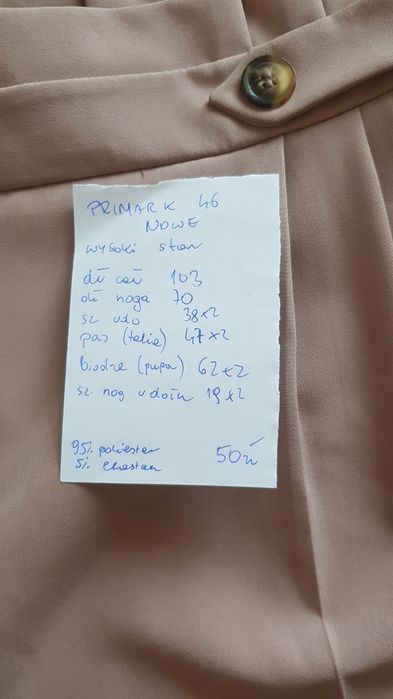 PRIMARK 46
NOWE
wysoki stan
dł cał 103
dł noga 70
sz udo 38x2
pas (talia) 47x2
biodra (pupa) 62x2
sz. nog u dołu 19x2
95% poliester
5% elastan
50zł